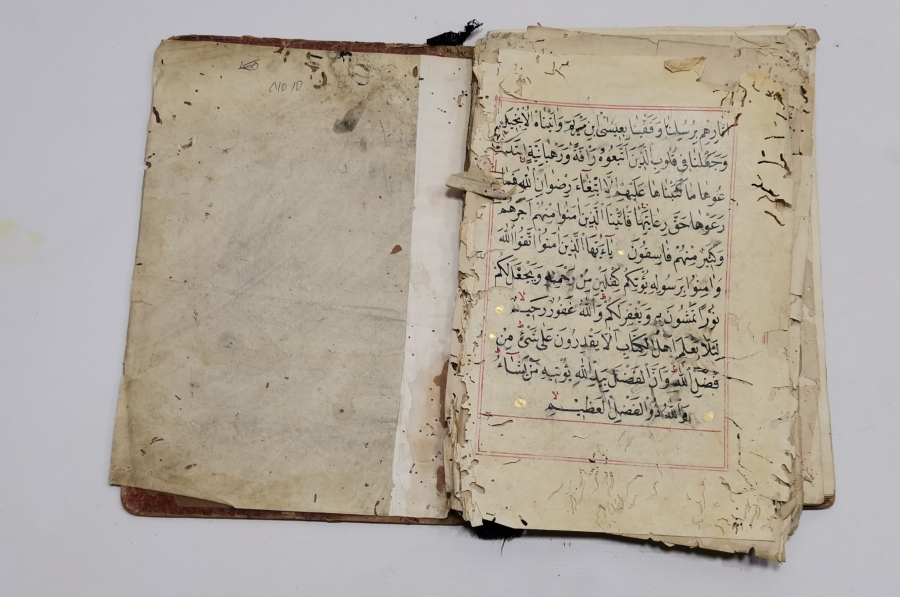 اثارهم برسلنا وقفينا بعيسى ابن مريم واتيناه الانجيل
وجعلنا في قلوب الذين اتبعوه رافة ورهبانية ابتد
عوها ما كتبناها عليهم الا ابتغاء رضوان الله فما
رعوها حق رعايتها فاتينا الذين امنوا منهم اجرهم
وكثير منهم فاسقون ياءيها الذين امنوا اتقوا الله
وامنوا برسوله يؤتكم كفلين من رحمته ويجعل لكم
نورا تمشون به ويغفر لكم والله غفور رحيم
لئلا يعلم اهل الكتاب الا يقدرون على شئ من
فضل الله وان الفضل بيد الله يؤتيه من يشاء
والله ذو الفضل العظيم